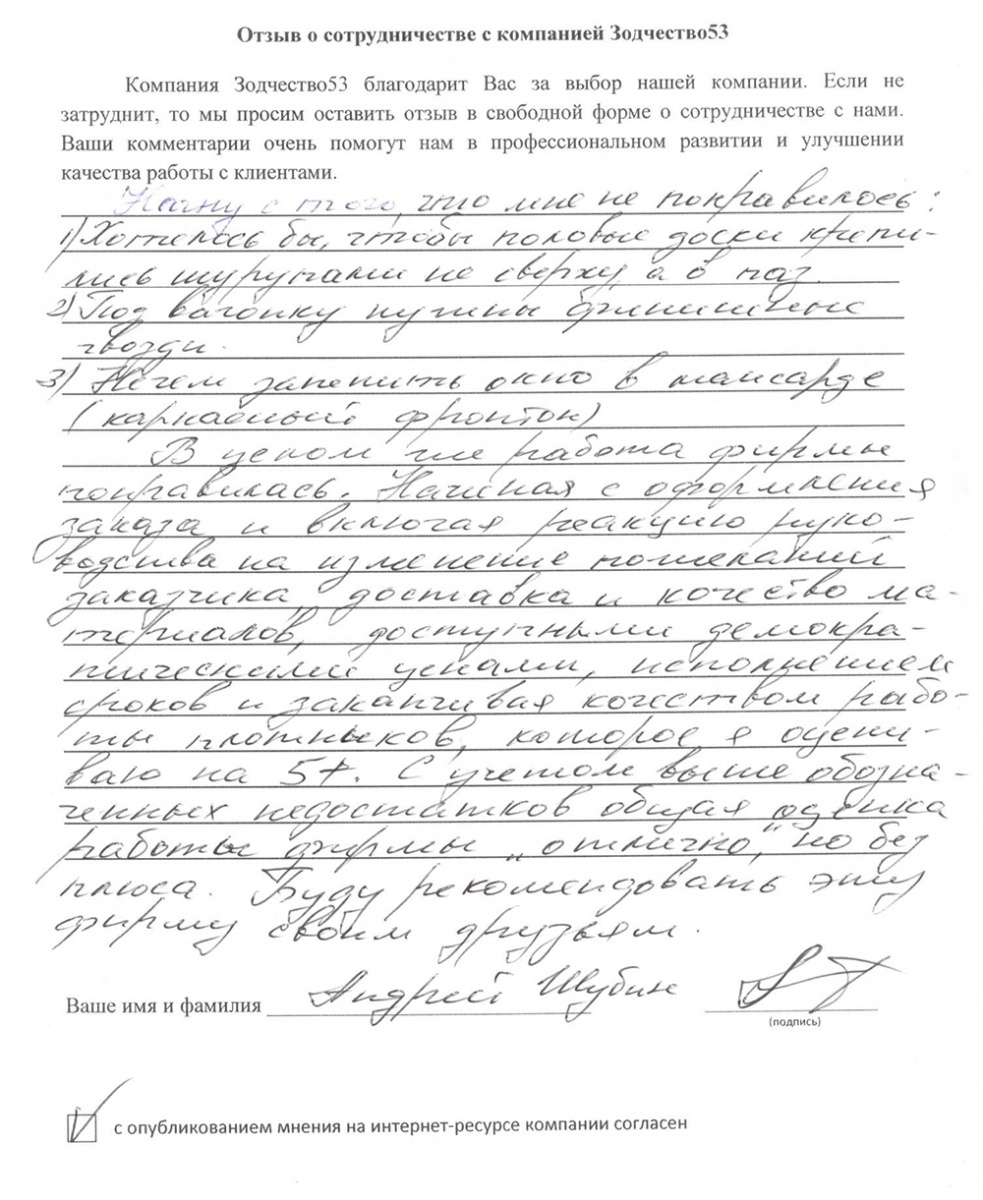 Отзыв о сотрудничестве с компанией Зодчество53
Компания Зодчество53 благодарит Вас за выбор нашей компании. Если не
затруднит, то мы просим оставить отзыв в свободной форме о сотрудничестве с нами.
Ваши комментарии очень помогут нам в профессиональном развитии и улучшении
качества работы с клиентами.
Начну с того, что мне не понравилось:
1) Хотелось бы, чтобы половые доски крепи-
лись шурупами не сверху, а в паз.
2) Под вагонку нужны финишные
гвозди.
3) Нечем запенить окно в мансарде
(каркасный фронтон)
В целом мне работа фирмы
понравилась. Начиная с оформления
заказа и включая реакцию руко-
водства на изменение пожеланий
заказчика, доставка и качество ма-
териалов, доступными демокра-
тическими ценами, исполнением
сроков и заканчивая качеством рабо-
ты плотников, которое я оцени-
ваю на 5+. С учетом выше обозна-
ченных недостатков общая оценка
работы фирмы „отлично", но без
плюса. Буду рекомендовать эту
фирму своим друзьям.
Ваше имя и фамилия Андрей Шубин
(подпись)
с опубликованием мнения на интернет-ресурсе компании согласен